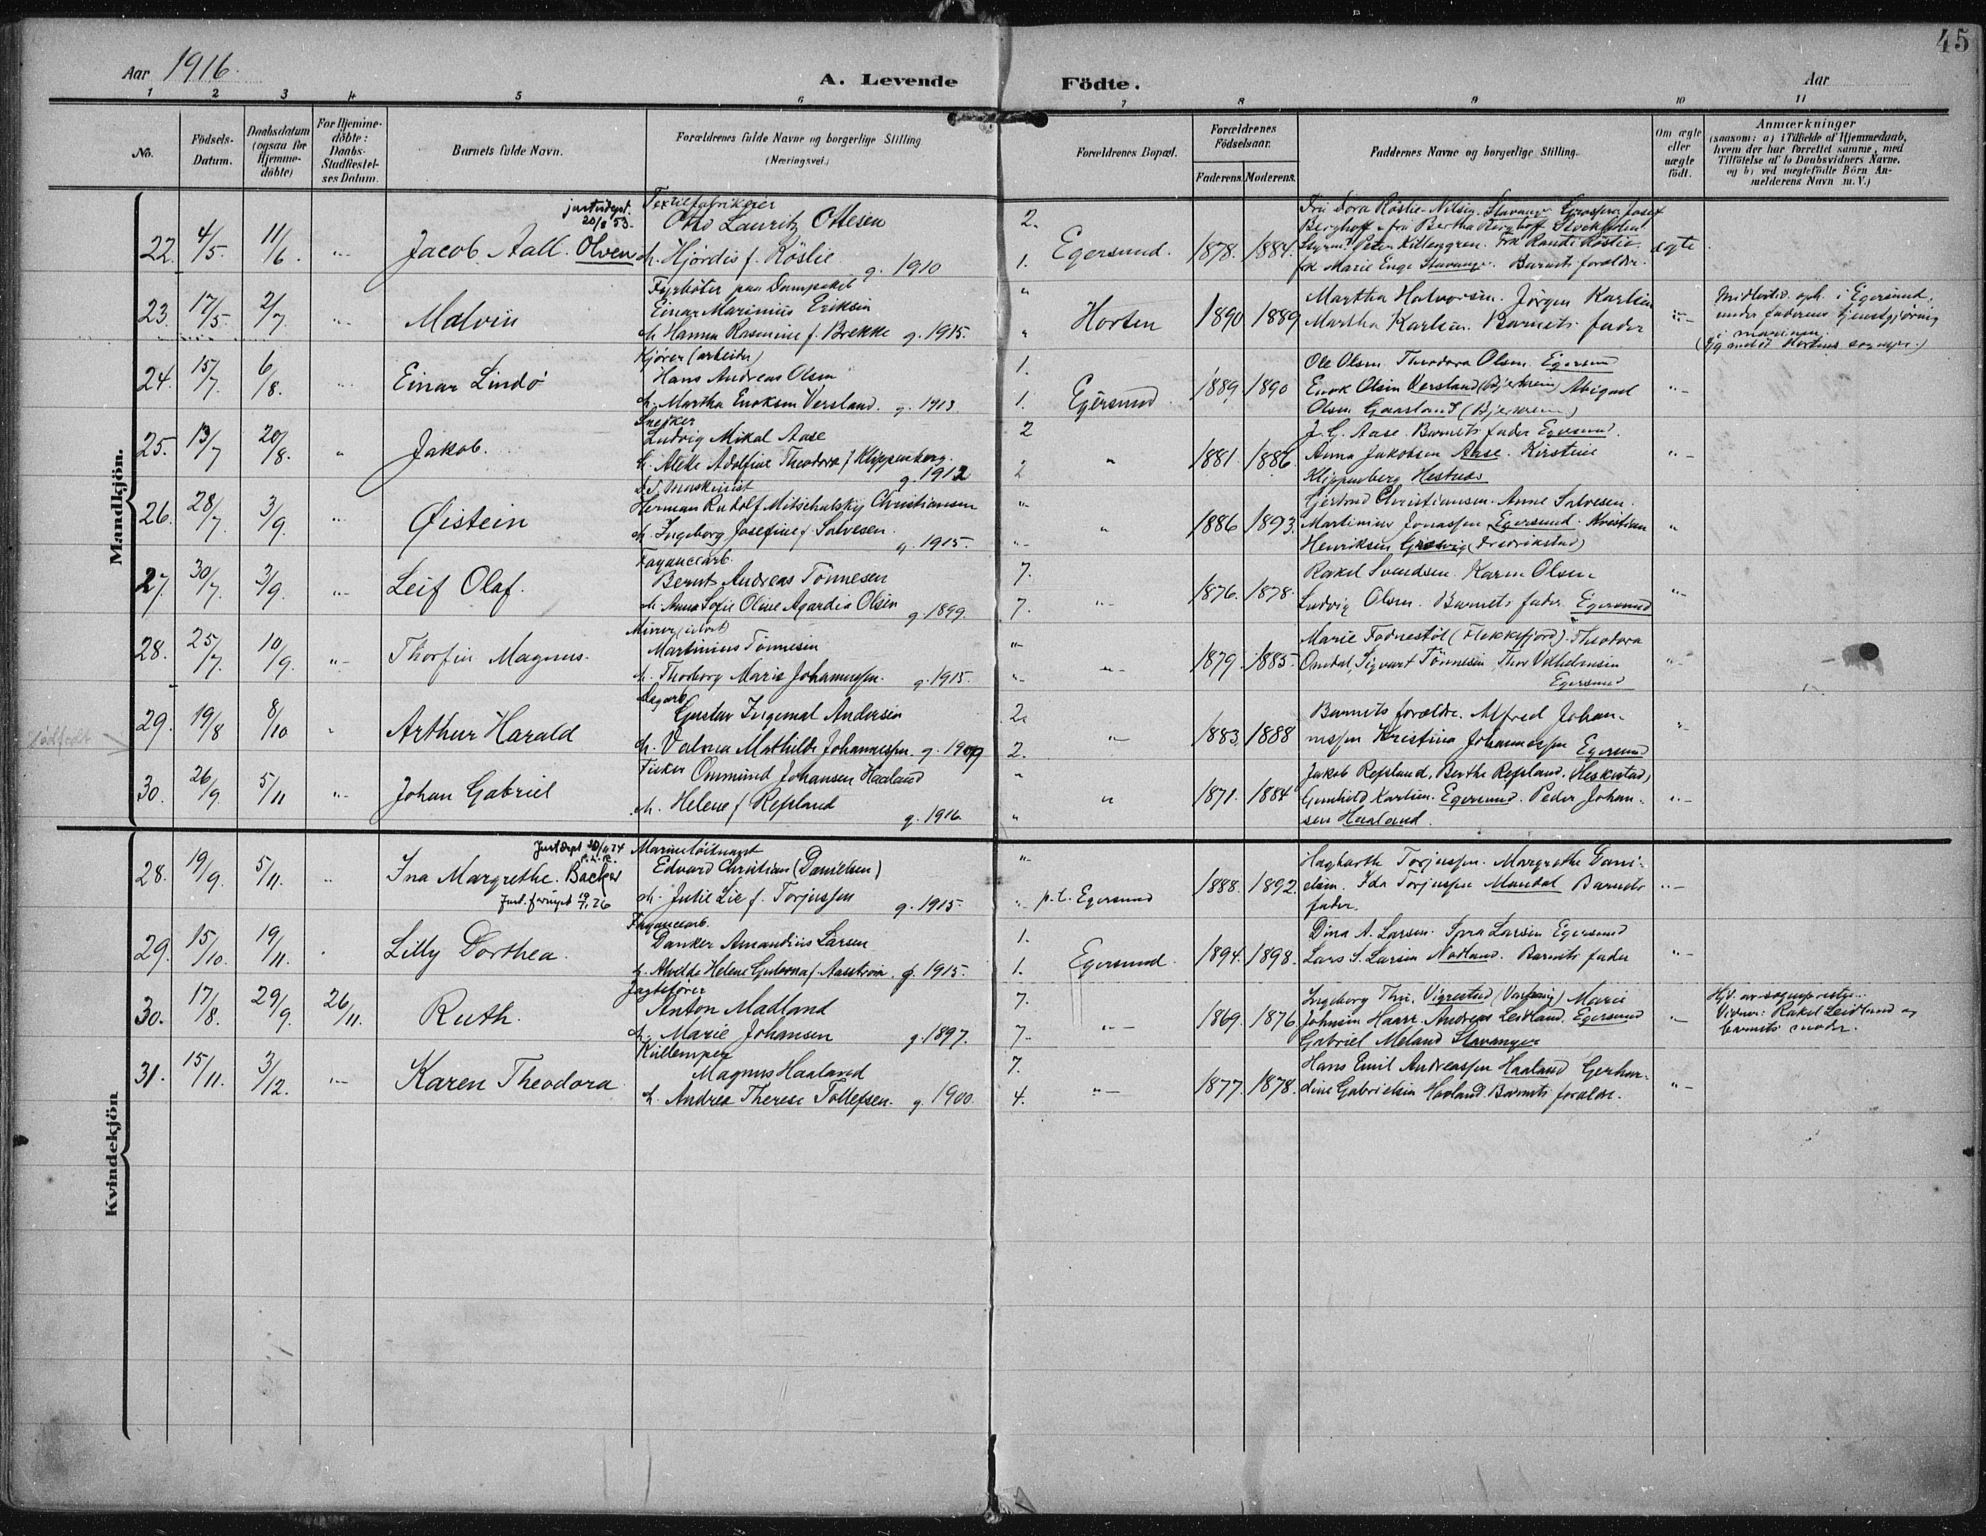 45
Aar 1916.
A. Levende Födte.
Aar
1 2 3 4 5 6 7 8 9 10 11
No.
Födsels-
Datum.
Daabsdatum
(ogsaa for
Hjemme-
döbte)
For Hjemme-
döbte:
Daabs-
Stadfæstel-
ses Datum.
Barnets fulde Navn.
Forældrenes fulde Navne og borgerlige Stilling
(Næringsvei.)
Forældrenes Bopæl.
Forældrenes
Födselsaar.
Faderens. Moderens.
Faddernes Navne og borgerlige Stilling.
Om ægte
eller
uægte
födt.
Anmærkninger
(saasom: a) i Tilfælde af Hjemmedaab,
hvem der har forrettet samme, med
Tilföielse af to Daabsvidners Navne,
og b) ved uegtefödte Börn An-
melderens Navn m. V.)
Mandkjön.
22. 4/5 11/6 "-
20/8 53.
Jacob Aall. Olven
Textilfabrikeier
Otto Lauritz Ottesen
h. Hjördis f. Röslie g. 1910
2.
1.
Egersund. 1878. 1884.
Berghoff - fru Bertha Berghoff Stockholm
fr. Marie Enge Stavanger. Barnets forældre.
ægte
23. 17/5 2/7 "-
Malvin
Fyrböter paa Dampskib
Einar Marinius Eriksen
h. Hanna Rasmine f. Brekke g. 1915.
Horten 1890 1889
Martha Halvorsen. Jörgen Karlsen
Martha Karlsen. Barnets fader
"-
Midlertid. oph. i Egersund
under faderens tjenestgjöring
i marinen.
24. 15/7 6/8. "-
Einar Lindö
Kjörer (arbeider)
Hans Andreas Olsen
h. Martha Enoksen Versland. g. 1913.
1.
1.
Egersund. 1889. 1890
Ole Olsen. Theodora Olsen. Egersund
Enok Olsen Versland (Bjerkreim) Abigael
Olsen Gaasland (Bjerkreim)
"-
25. 13/7 20/8. "
Jakob.
Snekker
Ludvig Mikal Aase
h. Alette Adolfine Theodora f. Klippenberg.
g. 1912
2
2
" 1881 1886
J. G. Aase. Barnets fader Egersund.
Anna Jakobsen Aase. Kirstine
Klippenberg Hestnes
"-
26. 28/7 3/9. "-
Øistein
D.S. Maskinist
Herman Rudolf Mitschulsky Christiansen
h. Ingeborg Josefine f. Salvesen.
g. 1915.
" 1886 1893.
Gertrud Christiansen. Anne Salvesen.
Martinius Jonassen Egersund. Kristian
Henriksen (Fredrikstad)
"
27. 30/7 3/9. "-
Leif Olaf.
Fayancearb.
Bernt Andreas Tönnesen
h. Anna Sofie Olive Agardia Olsen g. 1899.
7.
7.
"- 1876. 1878.
Rakel Svendsen. Karen Olsen
Ludvig Olsen. Barnets fader. Egersund
"-
28. 25/7. 10/9. "-
Thorfin Magnus.
Martinius Tönnesen
h. Thorborg Marie Johannessen. g. 1915.
"- 1879. 1885.
Marie Fodnestöl (Flekkefjord). Theodora
Omdal, Sigvart Tönnesen Thor Vilhelmsen
Egersund
"-
29. 19/8 8/10 "
Arthur Harald
Gustav Ingemal Andersen
h. Valma Mathilde Johannessen. g. 1907
2.
2.
"- 1883. 1888
Barnets forældre. Alfred Johan-
nessen Kristina Johannessen Egersund
"
30. 26/9 5/11 "-
Johan Gabriel
Fisker Ommund Johansen Haaland
h. Helene f. Repsland
g. 1916.
" 1871. 1884
Jakob Repsland, Berthe Repsland. (Heskestad)
Gunhild Karlsen. Egersund. Peder Johan-
sen Haaland.
"-
Kvindekjön
28. 19/9. 5/11. "
Ina Margrethe. Backer
Marinelöitnant
Edvard Christian (Danielsen)
h. Julie Lie f. Torjussen g. 1915.
p.t. Egersund 1888. 1892.
Hagbarth Torjussen. Margrethe Dani-
elsen. Ida Torjussen Mandal Barnets
fader.
"-
29. 15/10. 19/11. "
Lilly Dorthea.
Fayancearb.
Danker Amandius Larsen
g. 1915.
1.
1.
Egersund. 1894. 1898.
Dina A. Larsen. Egersund
Lars S. Larsen Nodland. Barnets fader
"-
30. 17/8. 29/9. 26/11.
Ruth.
Jagtefører
Anton Madland
h. Marie Johansen g. 1897.
7.
7.
"- 1869. 1876
Ingeborg Thu. Vigrestad (Varhaug) Marie
Johnsen Haarr. Andreas Leidland. Egersund
Gabriel Meland Stavanger
"-
Hj.d. av sogneprest
Vidner: Rakel Leidland og
barnets moder.
31. 15/11. 3/12. "-
Karen Theodora.
Kullemper
Magnus Haaland
h. Andrea Therese Tollefsen. g. 1900.
7.
4.
"- 1877. 1878.
Hans Emil Andreassen Haaland Gerhar-
dine Gabrielsen Haaland. Barnets forældre.
"-